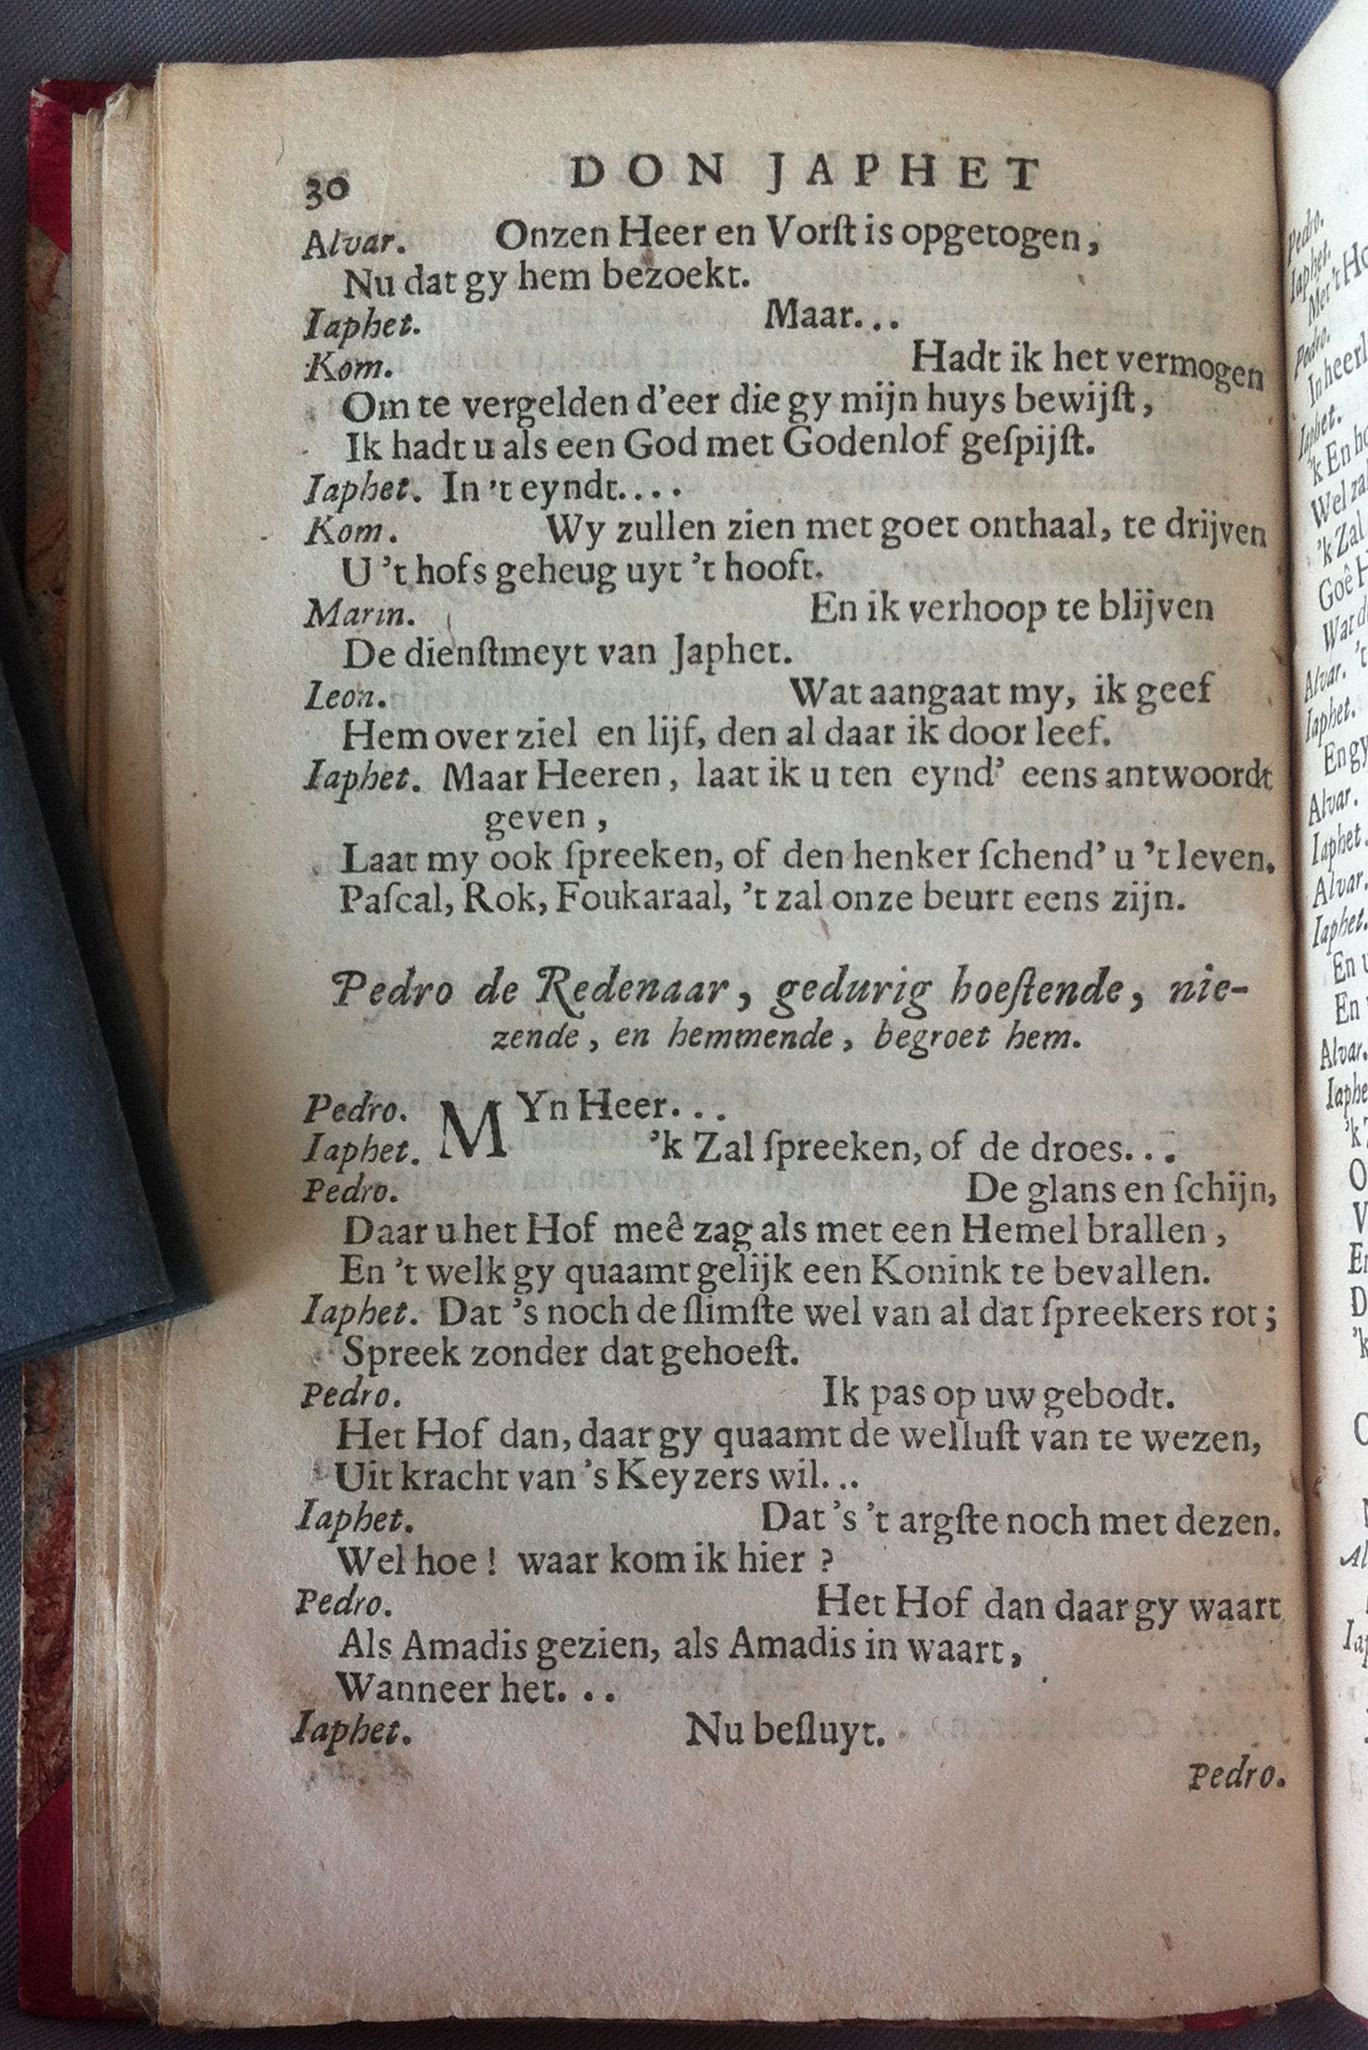 30 DON JAPHET
Alvar. Onzen Heer en Vorſt is opgetogen,
Nu dat gy hem bezoekt.
Iaphet. Maar...
Kom. Hadt ik het vermogen
Om te vergelden d'eer die gy mijn huys bewijſt,
Ik hadt u als een God met Godenlof geſpijſt.
Iaphet. In 't eyndt....
Kom. Wy zullen zien met goet onthaal, te drijven
U 't hofs geheug uyt 't hooft.
Marin. En ik verhoop te blijven
De dienſtmeyt van Japhet.
Leon. Wat aangaat my, ik geef
Hem over ziel en lijf, den al daar ik door leef.
Iaphet. Maar Heeren, laat ik u ten eynd' eens antwoordt
geven,
Laat my ook ſpreeken, of den henker ſchend' u 't leven.
Paſcal, Rok, Foukaraal, 't zal onze beurt eens zijn.
Pedro de Redenaar, gedurig hoeſtende, nie-
zende, en hemmende, begroet hem.
Pedro. MYn Heer...
Iaphet. 'k Zal ſpreeken, of de droes...
Pedro. De glans en ſchijn,
Daar u het Hof meê zag als met een Hemel brallen,
En 't welk gy quaamt gelijk een Konink te bevallen.
Iaphet. Dat 's noch de ſlimſte wel van al dat ſpreekers rot;
Spreek zonder dat gehoeſt.
Pedro. Ik pas op uw gebodt.
Het Hof dan, daar gy quaamt de welluſt van te wezen,
Uit kracht van 's Keyzers wil...
Iaphet. Dat 's 't argſte noch met dezen.
Wel hoe! waar kom ik hier?
Pedro. Het Hof dan daar gy waart
Als Amadis gezien, als Amadis in waart,
Wanneer het...
Iaphet. Nu beſluyt.
Pedro.
Pedro.
Iaphet.
Met 't
Pedro.
In
Iaphet.
'k En
Wel
'k Zal
Goê
Wat
Alvar. 't
Iaphet.
En gy
Alvar.
Iaphet.
Alvar.
Iaphet.
En
En
Alvar.